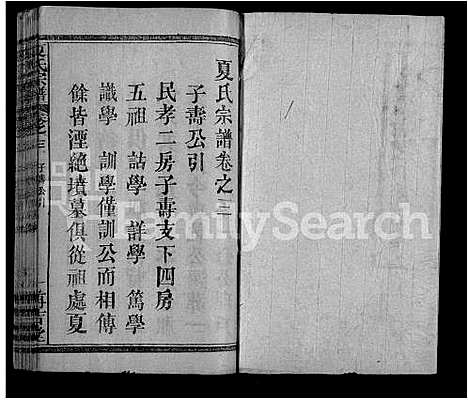 夏氏宗譜卷之三
子壽公引
民孝二房子壽支下四房
五祖 詁學 詳學 篤學
識學 訓學僅訓公而相傳
餘皆湮絶墳墓俱從祖處夏
夏氏宗譜 卷之三 子壽公引
FamilySearch